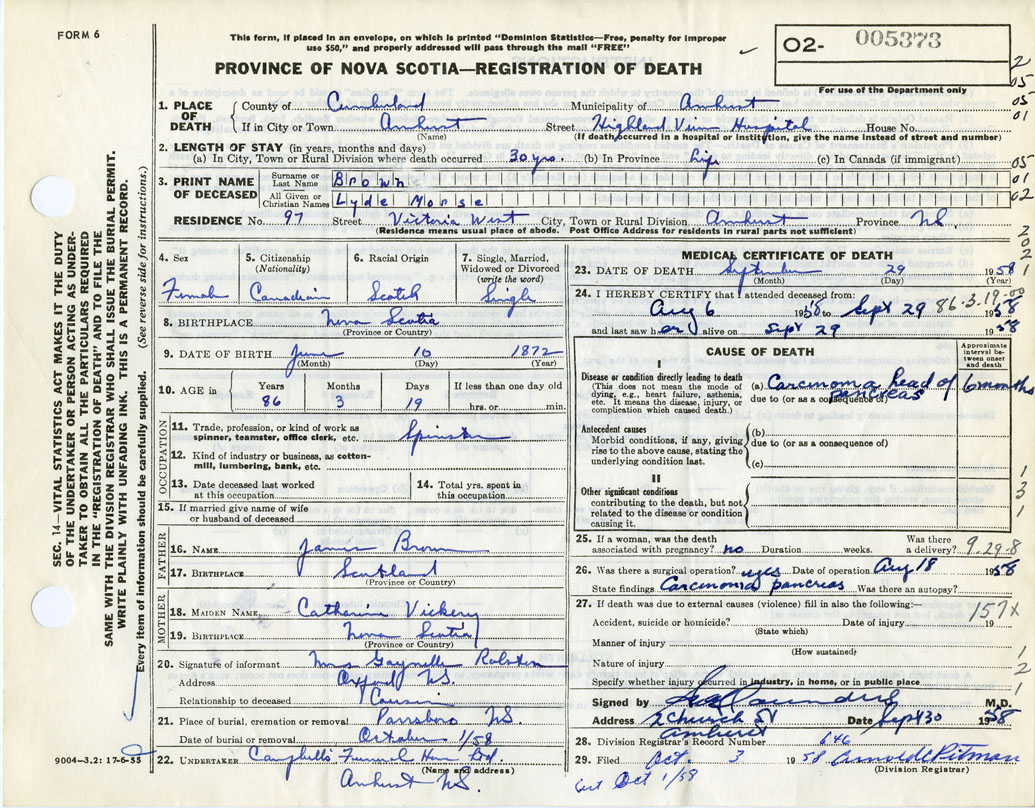 FORM 6
This form, if placed in an envelope, on which is printed "Dominion Statistics—Free, penalty for improper
use $50," and properly addressed will pass through the mail "FREE"
PROVINCE OF NOVA SCOTIA—REGISTRATION OF DEATH
02- 005373
For use of the Department only
2
05
05
01
1. PLACE OF DEATH
County of Cumberland Municipality of Amherst
If in City or Town Amherst Street Highland View Hospital House No.
(Name) (If death occurred in a hospital or institution, give the name instead of street and number)
2. LENGTH OF STAY (in years, months and days)
(a) In City, Town or Rural Division where death occurred 30 yrs. (b) In Province Life (c) In Canada (if immigrant)
05
01
02
3. PRINT NAME OF DECEASED
Surname or Last Name Brown
All Given or Christian Names Lyde Morse
RESIDENCE No. 97 Street Victoria West City, Town or Rural Division Amherst Province NS.
(Residence means usual place of abode. Post Office Address for residents in rural parts not sufficient)
4. Sex
Female
5. Citizenship (Nationality)
Canadian
6. Racial Origin
Scotch
7. Single, Married, Widowed or Divorced (write the word)
Single
8. BIRTHPLACE Nova Scotia
(Province or Country)
9. DATE OF BIRTH June 10 1872
(Month) (Day) (Year)
10. AGE in Years Months Days If less than one day old
86 3 19 hrs. or min.
OCCUPATION
11. Trade, profession, or kind of work as
spinner, teamster, office clerk, etc. Spinster
12. Kind of industry or business, as cotton-
mill, lumbering, bank, etc.
13. Date deceased last worked
at this occupation
14. Total yrs. spent in
this occupation
15. If married give name of wife
or husband of deceased
FATHER
16. NAME James Brown
17. BIRTHPLACE Scotland
(Province or Country)
MOTHER
18. MAIDEN NAME Catharine Vickery
19. BIRTHPLACE Nova Scotia
(Province or Country)
20. Signature of informant Mrs Gaynelle Ralston
Address Oxford NS.
Relationship to deceased Cousin
21. Place of burial, cremation or removal Parrsboro NS.
Date of burial or removal October 1/58
22. UNDERTAKER Campbell's Funeral Home Ltd.
(Name and address)
Amherst NS.
MEDICAL CERTIFICATE OF DEATH
23. DATE OF DEATH September 29 1958
(Month) (Day) (Year)
24. I HEREBY CERTIFY that I attended deceased from:
Aug 6 1958 to Sept 29 1958
86-3-19-00
and last saw her alive on Sept 29 1958
CAUSE OF DEATH
Approximate interval between onset and death
I
Disease or condition directly leading to death
(This does not mean the mode of
dying, e.g., heart failure, asthenia,
etc. It means the disease, injury, or
complication which caused death.)
(a) Carcinoma head of pancreas 6 months
due to (or as a consequence of)
Antecedent causes
Morbid conditions, if any, giving
rise to the above cause, stating the
underlying condition last.
(b)
due to (or as a consequence of)
(c)
II
Other significant conditions
contributing to the death, but not
related to the disease or condition
causing it.
25. If a woman, was the death
associated with pregnancy? no Duration weeks. Was there a delivery?
9-29-8
26. Was there a surgical operation? yes Date of operation Aug 18 1958
State findings Carcinoma pancreas Was there an autopsy?
27. If death was due to external causes (violence) fill in also the following:—
157X
Accident, suicide or homicide? Date of injury 19
(State which)
Manner of injury
(How sustained)
Nature of injury
Specify whether injury occurred in industry, in home, or in public place
Signed by M.D.
Address 2 Church St Date Sept 30 1958
Amherst
28. Division Registrar's Record Number 646
29. Filed Oct. 3 1958 Arnold C Pitman
(Division Registrar)
Oct 1/58
SEC. 14—VITAL STATISTICS ACT MAKES IT THE DUTY
OF THE UNDERTAKER OR PERSON ACTING AS UNDER-
TAKER TO OBTAIN ALL THE PARTICULARS REQUIRED
IN THE "REGISTRATION OF DEATH" AND TO FILE THE
SAME WITH THE DIVISION REGISTRAR WHO SHALL ISSUE THE BURIAL PERMIT.
WRITE PLAINLY WITH UNFADING INK. THIS IS A PERMANENT RECORD.
Every item of information should be carefully supplied. (See reverse side for instructions.)
9004-3.2: 17-6-55